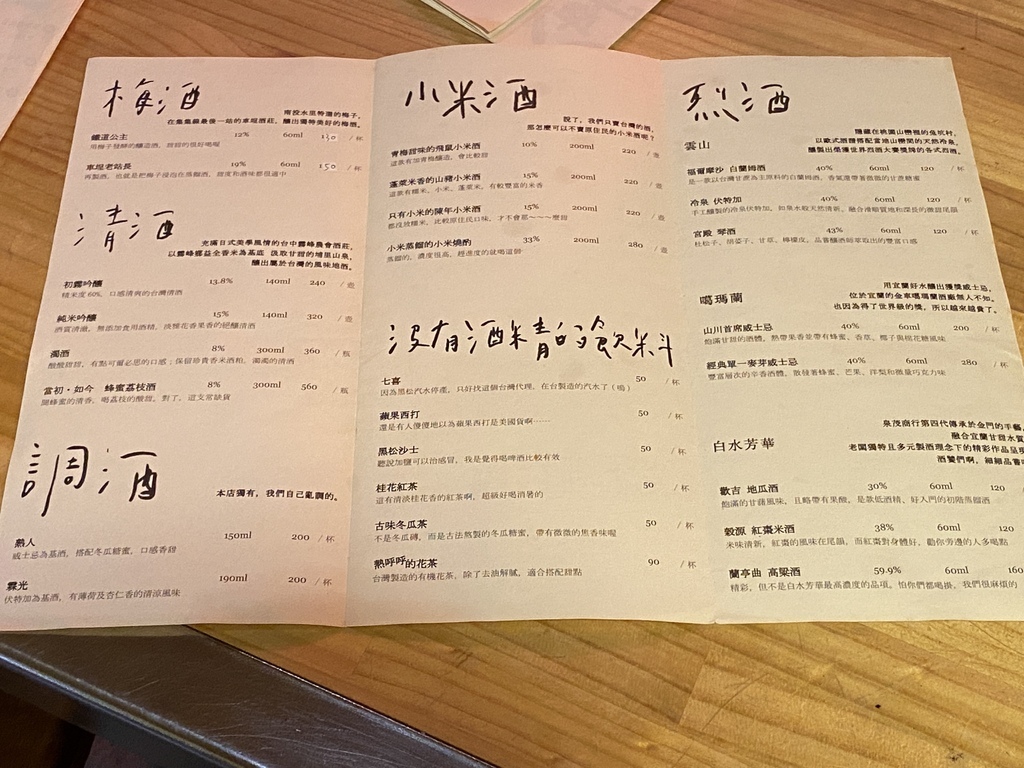 梅酒
南投水里特選的梅子,
在集集線最後一站的車埕酒莊, 釀出獨特美好的梅酒。
鐵道公主 12% 60ml 130 /杯
用梅子發酵的釀造酒, 甜甜的很好喝喔
車埕老站長 19% 60ml 150 /杯
再製酒, 也就是把梅子浸泡在蒸餾酒, 甜度和酒味都很適中
清酒
充滿日式美學風情的台中霧峰農會酒莊,
以霧峰鄉益全香米為基底 汲取甘甜的埔里山泉,
釀出屬於台灣的風味地酒。
初霧吟釀 13.8% 140ml 240 /壺
精米度 60%, 口感清爽的台灣清酒
純米吟釀 15% 140ml 320 /壺
酒質清澈, 無添加食用酒精, 淡雅花香果香的絕釀清酒
濁酒 8% 300ml 360 /瓶
酸酸甜甜, 有點可爾必思的口感;保留珍貴香米酒粕, 濁濁的清酒
當初·如今 蜂蜜荔枝酒 8% 300ml 560 /瓶
聞蜂蜜的清香, 喝荔枝的酸甜, 對了, 這支常缺貨
調酒
本店獨有, 我們自己亂調的。
熱人 150ml 200 /杯
威士忌為基酒, 搭配冬瓜糖蜜, 口感香甜
霖光 190ml 200 /杯
伏特加為基酒, 有薄荷及杏仁香的清涼風味
小米酒
說了, 我們只賣台灣的酒,
那怎麼可以不賣原住民的小米酒呢?
青梅甜味的飛鼠小米酒 10% 200ml 220 /壺
這款有加青梅釀造, 會比較甜
蓬萊米香的山豬小米酒 15% 200ml 220 /壺
這款有糯米、小米、蓬萊米, 有較豐富的米香
只有小米的陳年小米酒 15% 200ml 220 /壺
都沒放糯米, 比較原住民口味, 才不會那~~~麼甜
小米蒸餾的小米燒酌 33% 200ml 280 /壺
蒸餾的, 濃度很高, 趕進度的就喝這個
沒有酒精的飲料
七喜 50 /杯
因為黑松汽水停產, 只好找這個台灣代理、在台製造的汽水了 (嗚)
蘋果西打 50 /杯
還是有人傻傻地以為蘋果西打是美國貨啊⋯⋯
黑松沙士 50 /杯
聽說加鹽可以治感冒, 我是覺得喝啤酒比較有效
桂花紅茶 50 /杯
這有清淡桂花香的紅茶啊, 超級好喝消暑的
古味冬瓜茶 50 /杯
不是冬瓜磚, 而是古法熬製的冬瓜糖蜜, 帶有微微的焦香味喔
熱呼呼的花茶 90 /杯
台灣製造的有機花茶, 除了去油解膩, 適合搭配甜點
烈酒
雲山
隱藏在桃園山巒裡的兔坑村,
以歐式酒譜搭配當地山巒間的天然冷泉,
釀製出備獲世界烈酒大賽獎牌的各式烈酒。
福爾摩沙 白蘭姆酒 40% 60ml 120 /杯
是一款以台灣甘蔗為主原料的白蘭姆酒, 香氣還帶著微微的甘蔗糖蜜
冷泉 伏特加 40% 60ml 120 /杯
手工釀製的冷泉伏特加, 如泉水般天然清新, 融合滑順質地和深長的微甜尾韻
宮殿 琴酒 43% 60ml 120 /杯
杜松子、胡荽子、甘草、檸檬皮, 品嘗釀酒師萃取出的豐富口感
噶瑪蘭
用宜蘭好水釀出獲獎威士忌,
位於宜蘭的金車噶瑪蘭酒廠無人不知,
也因為得了世界級的獎, 所以越來越貴了。
山川首席威士忌 40% 60ml 200 /杯
飽滿甘甜的酒體, 熱帶果香並帶有蜂蜜、香草、椰子與棉花糖風味
經典單一麥芽威士忌 40% 60ml 280 /杯
豐富層次的辛香酒體, 散發著蜂蜜、芒果、洋梨和微量巧克力味
白水芳華
泉茂商行第四代傳承於金門的手藝,
融合宜蘭甘甜水質
老闆獨特且多元製酒理念下的精彩作品呈現
酒饕們啊, 細細品嘗
歡吉 地瓜酒 30% 60ml 120 /杯
飽滿的甘藷風味、且略帶有果酸, 是款低酒精、好入門的初階蒸餾酒
穀源 紅棗米酒 38% 60ml 120 /杯
米味清新, 紅棗的風味在尾韻, 而紅棗對身體好, 勸你旁邊的人多喝點
蘭亭曲 高粱酒 59.9% 60ml 160
精彩, 但不是白水芳華最高濃度的品項, 怕你們都喝掛, 我們很麻煩的